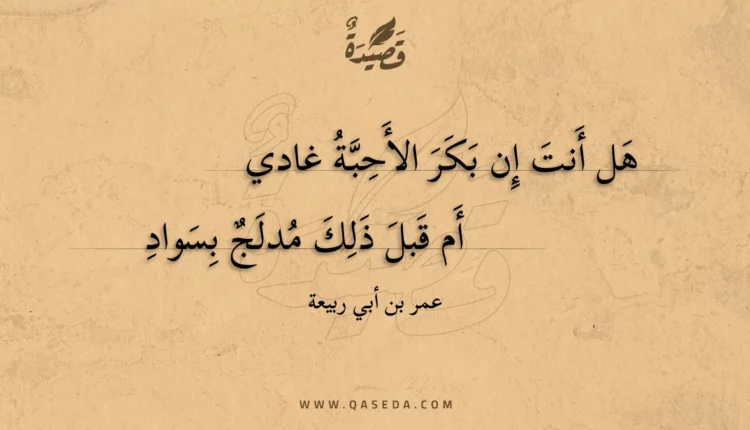 قَصِيدَةٌ
هَل أَنتَ إِن بَكَرَ الأَحِبَّةُ غادي
أَم قَبلَ ذَلِكَ مُدلَجٌ بِسَوادِ
عمر بن أبي ربيعة
WWW.QASEDA.COM